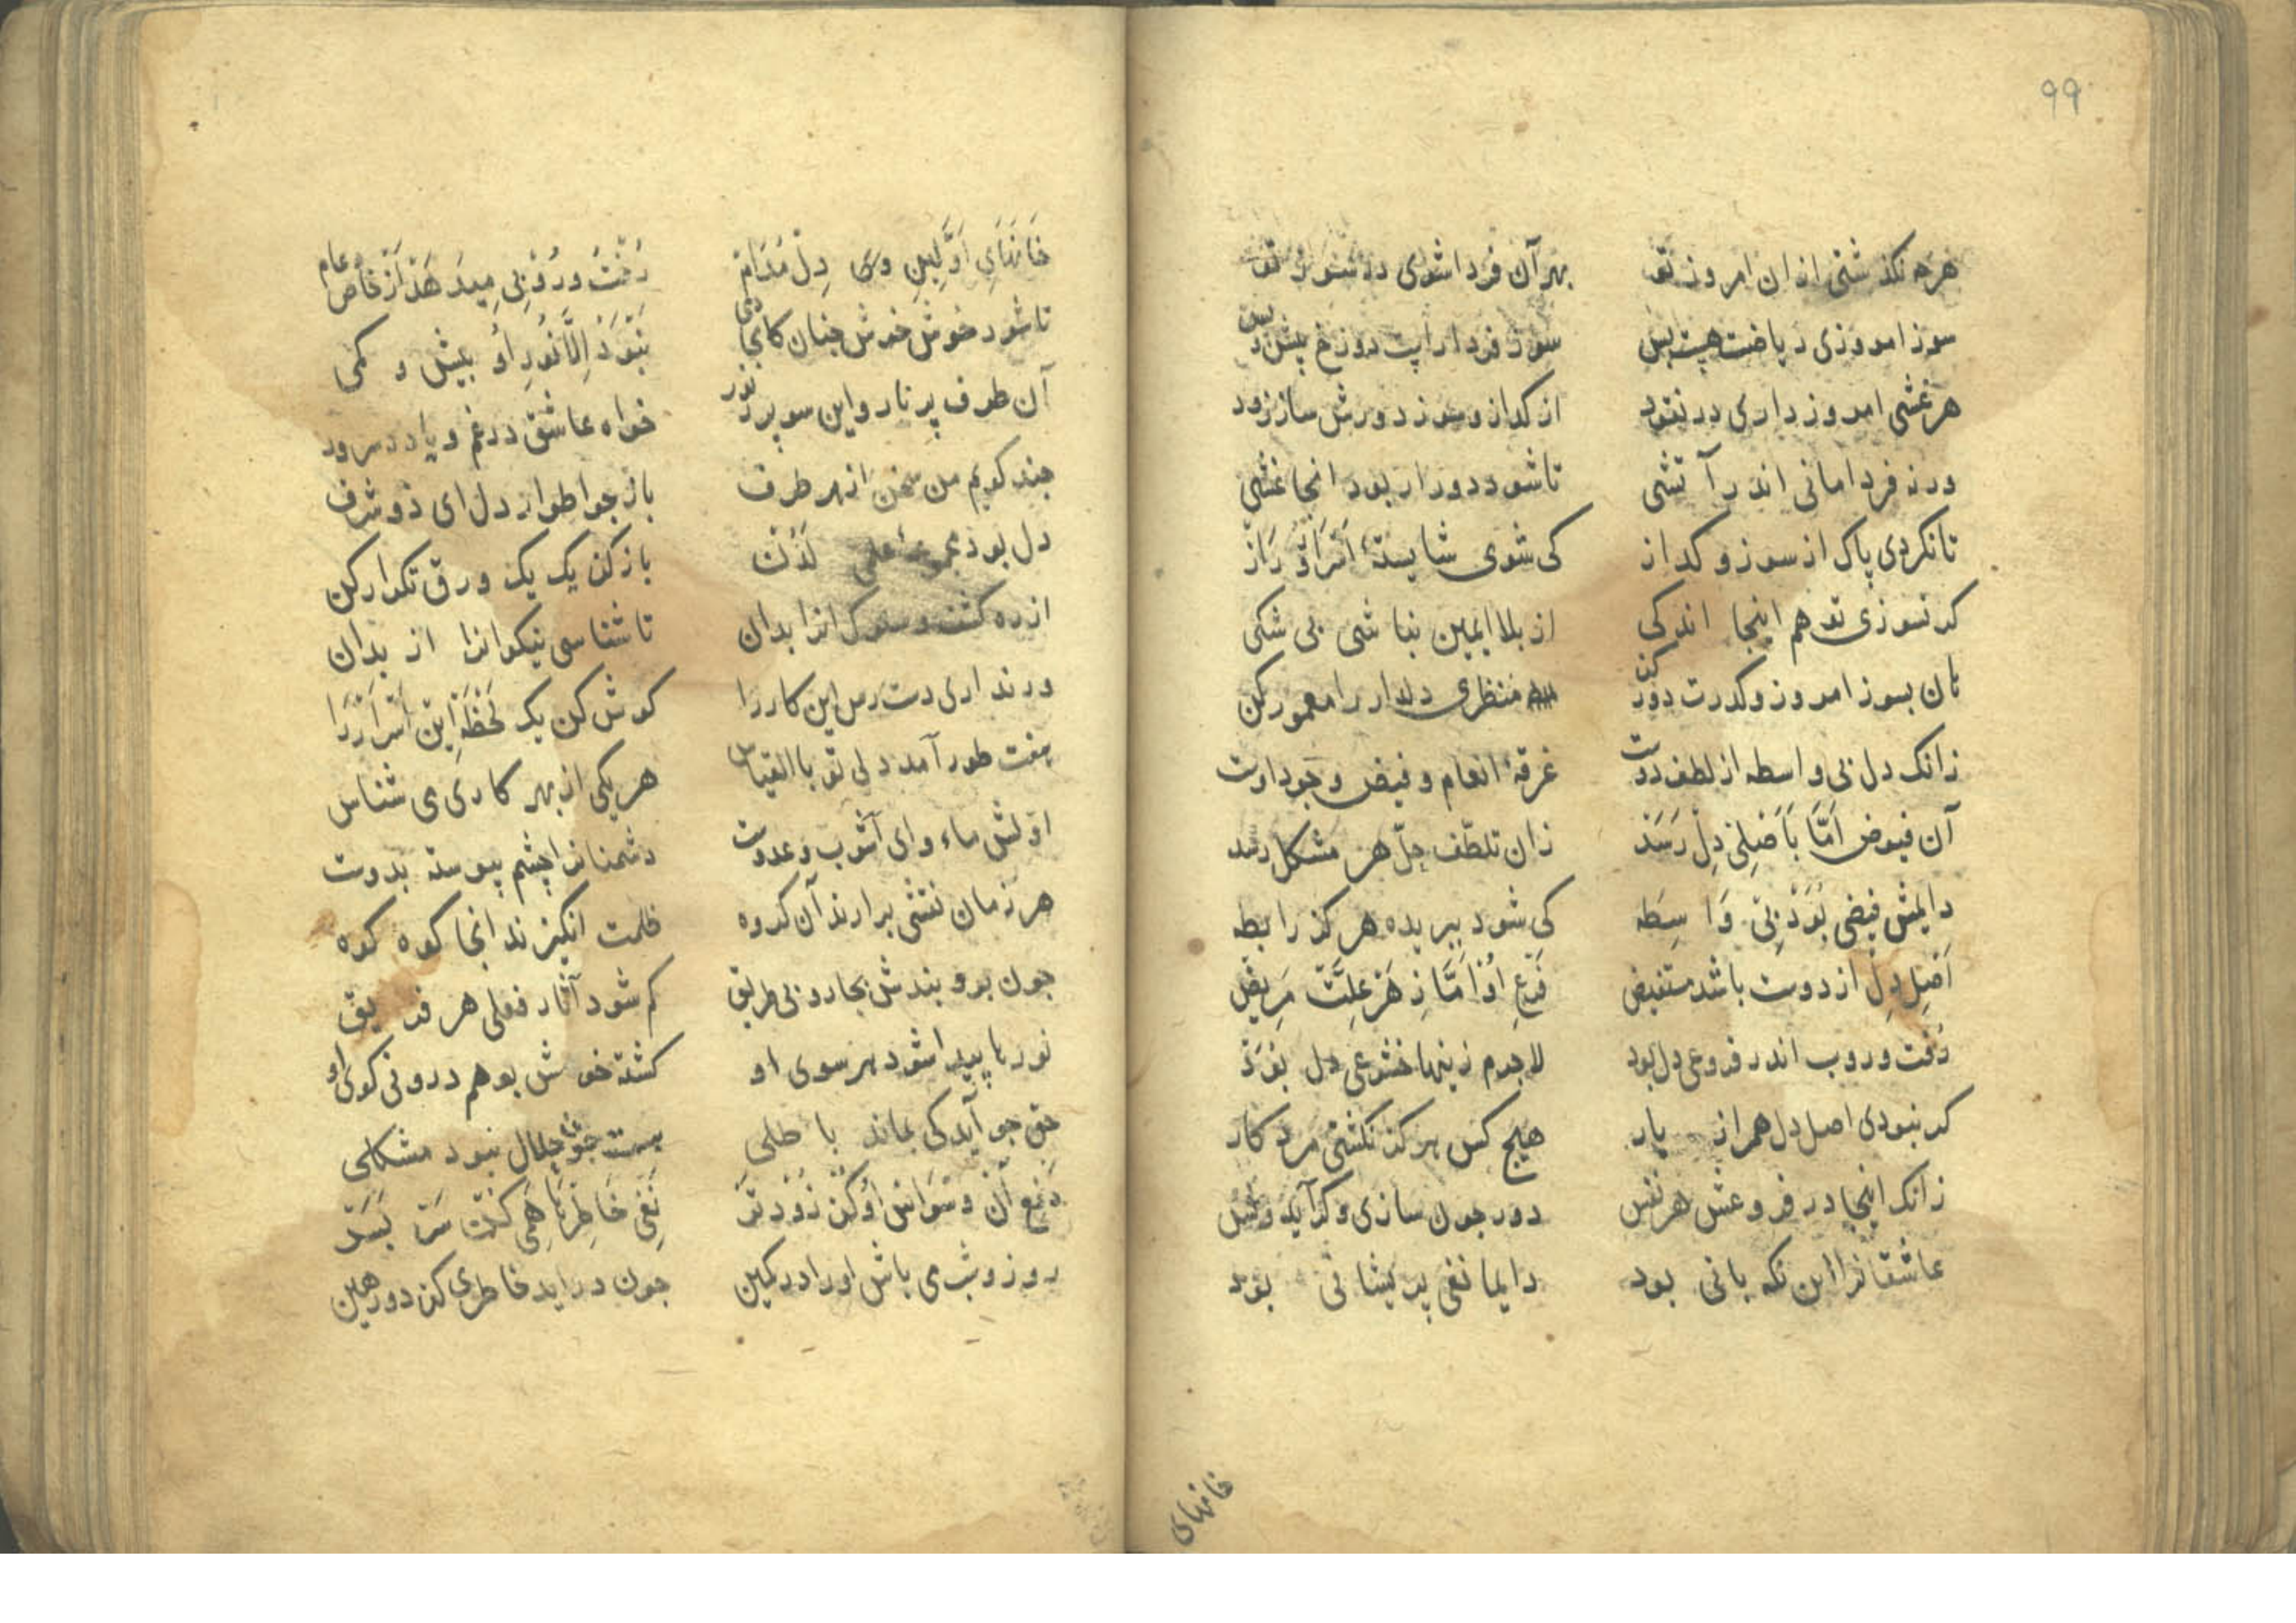 ۹۹
هرم نکذشتی ازان امروز تو بهر آن فردا شوی در سوز تو
سوز امروزی ریاضت هست بس سوز فردا دوزخ پیش و پس
هر غشی امروز داری در نقود از کداز و سوز دورش ساز زود
ورنه فردا مانی اندر آتشی تا شود دور ار بود انجا غشی
تا نکردی پاک از سوز و کداز کی شوی شایستهٔ اسرار و راز
کر نسوزی تو هم اینجا اندکی از بلا ایمین نباشی بی شکی
تن بسوز امروز وکدرت دور کن منظری دلدار را معمور کن
زانک دل بی واسطه از لطف دوست غرقهٔ انعام و فیض وجود اوست
آن فیوض اَمَّا بَاصْلِیْ دِلْ رَسَدْ زان تلطّف حلّ هر مشکل رسد
دایمش فیضی بُوَدْ بِیْ وَاسِطَه کی شود ببریده هرکز رابطه
اَصْلِ دِلْ از دوست باشد مستفیض فَرْعِ اُوْ اَمَّا زِ هَرْ عِلَّتْ مَرِیْضْ
رُفت وروب اندر فروعی دل بود لاجرم زینها خشوعی دل بُوَدْ
کر نبودی اصل دل همراز یار هیچ کس هرکز نکشتی مرد کار
زانک اینجا در فروعش هر نفس دور چون سازی وکر آید
عاشقانرا این نکه بانی بود دایما نفی پریشانی بود
خانهای
خَانَهَایِ اَوَّلِینِ وی دِلْ مُدَامْ رُفْتُ ورُوْبِیْ مِیدَهَدْ اَزْ خَاص و عام
تا شود خوش خوش چنان کای دمی نَبْوَدْ اِلَّا نُورِ اُو بیش و کمی
آن طرف پر نار و این سو پر ز نور خواه عاشق در غم و یا در سرور
چند کویم من سخن از هر طرف باز جو اطوار دل ای ذو شرف
دل بود مجموعهٔ علمی لَدُنْ باز کن یک یک ورق تکرار کن
از ره کشف و سلوک انرا بدان تا شناسی نیکوانرا از بدان
ورنداری دست رس این کار را کوش کن یک لَحْظَه اِیْن اَسْرَار رَا
هفت طور آمد دلی تو با القیاس هر یکی از بهر کاری می شناس
اوّلش ماء وای آشوب و عدوست دشمنانرا چشم پیوسته بدوست
هر زمان نقشی برارند آن کروه ظلمت انکیزند انجا کوه کوه
چون برو بندش بجاروبی طریق کم شود آثار فعلی هر فریق
نورها پیدا شود هر سوی او کشته خوش بو هم درونی کوی او
حق چو آید کی بماند باطلی هست جولال نبود مشکلی
دَفْعِ آنْ وَسْوَاسْ اُوْ کُنْ زُوْد تَرْ نَفْیِ خَاطِرْهَا هَمِی کُنْ سَرْ بَسَرْ
روز وشب می باش او را در کمین چون دراید خاطری کن دور همین